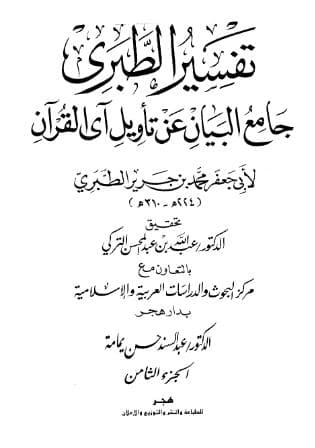 تفسير الطبري
جامع البيان عن تأويل آي القرآن
لأبي جعفر محمد بن جرير الطبري
(٢٢٤ھ - ٣١٠ھ)
تحقيق
الدكتور عبد الله بن عبد المحسن التركي
بالتعاون مع
مركز البحوث والدراسات العربية والإسلامية
بدار هجر
الدكتور عبد السند حسن يمامة
الجزء الثامن
هجر
للطباعة والنشر والتوزيع والإعلان